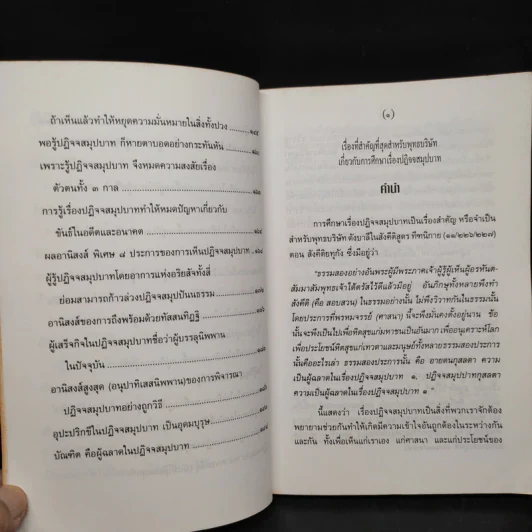 ถ้าเห็นแล้วทำให้หยุดความมั่นหมายในสิ่งทั้งปวง
พอรู้ปฏิจจสมุปบาท ก็หายตาบอดอย่างกระทันหัน
เพราะรู้ปฏิจจสมุปบาท จึงหมดความสงสัยเรื่อง
ตัวตนทั้ง ๓ กาล
การรู้เรื่องปฏิจจสมุปบาททำให้หมดปัญหาเกี่ยวกับ
ขันธ์ในอดีตและอนาคต
ผลอานิสงส์ พิเศษ ๘ ประการของการเห็นปฏิจจสมุปบาท
ผู้รู้ปฏิจจสมุปบาทโดยอาการแห่งอริยสัจทั้งสี่
ย่อมสามารถก้าวล่วงปฏิจจสมุปปันนธรรม
อานิสงส์ของการถึงพร้อมด้วยทัสสนทิฏฐิ
ผู้เสร็จกิจในปฏิจจสมุปบาทชื่อว่าผู้บรรลุนิพพาน
ในปัจจุบัน
อานิสงส์สูงสุด (อนุปาทิเสสนิพพาน) ของการพิจารณา
ปฏิจจสมุปบาทอย่างถูกวิธี
อุปะปริกขีในปฏิจจสมุปบาท เป็นอุดมบุรุษ
บัณฑิต คือผู้ฉลาดในปฏิจจสมุปบาท
(๑)
เรื่องที่สำคัญที่สุดสำหรับพุทธบริษัท
เกี่ยวกับการศึกษาเรื่องปฏิจจสมุปบาท
คำนำ
การศึกษาเรื่องปฏิจจสมุปบาทเป็นเรื่องสำคัญ หรือจำเป็น
สำหรับพุทธบริษัท ดังบาลีในสังคีติสูตร ทีฆนิกาย (๑๑/๒๒๖/๒๒๗)
ตอน สังคีติยทุกัง ซึ่งมีอยู่ว่า
"ธรรมสองอย่างอันพระผู้มีพระภาคเจ้าผู้รู้ผู้เห็นผู้อรหันต-
สัมมาสัมพุทธเจ้าได้ตรัสไว้ดีแล้วมีอยู่ อันภิกษุทั้งหลายพึงทำ
สังคีติ (คือ สอบสวน) ในธรรมอย่างนั้น ไม่พึงวิวาทกันในธรรมนั้น
โดยประการที่พรหมจรรย์ (ศาสนา) นี้จะพึงมั่นคงตั้งอยู่นาน ข้อ
นั้นจะพึงเป็นไปเพื่อหิตสุขแก่มหาชนเป็นอันมาก เพื่ออนุเคราะห์โลก
เพื่อประโยชน์หิตสุขแก่เทวดาและมนุษย์ทั้งหลายธรรมสองประการ
นั้นคืออะไรเล่า ธรรมสองประการนั้น คือ อายตนกุสลตา ความ
เป็นผู้ฉลาดในเรื่องปฏิจจสมุปบาท ๑, ปฏิจจสมุปปาทกุสลตา
ความเป็นผู้ฉลาดในเรื่องปฏิจจสมุปบาท ๑ "
นี้แสดงว่า เรื่องปฏิจจสมุปบาทเป็นสิ่งที่พวกเราจักต้อง
พยายามช่วยกันทำให้เกิดมีความเข้าใจอันถูกต้องในระหว่างกัน
และกัน ทั้งเพื่อเห็นแก่เราเอง แก่ศาสนา และแก่ประโยชน์ของ